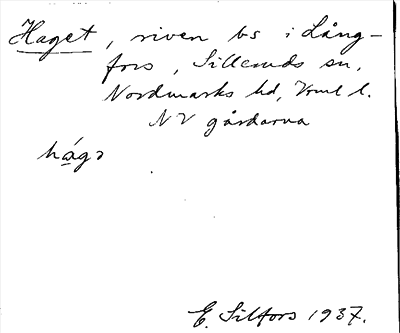 Haget, riven bs i Lång-
fors, Silleruds sn,
Nordmarks hd, Vrml l.
NV gårdarna
hágə
E. Silfors 1937.